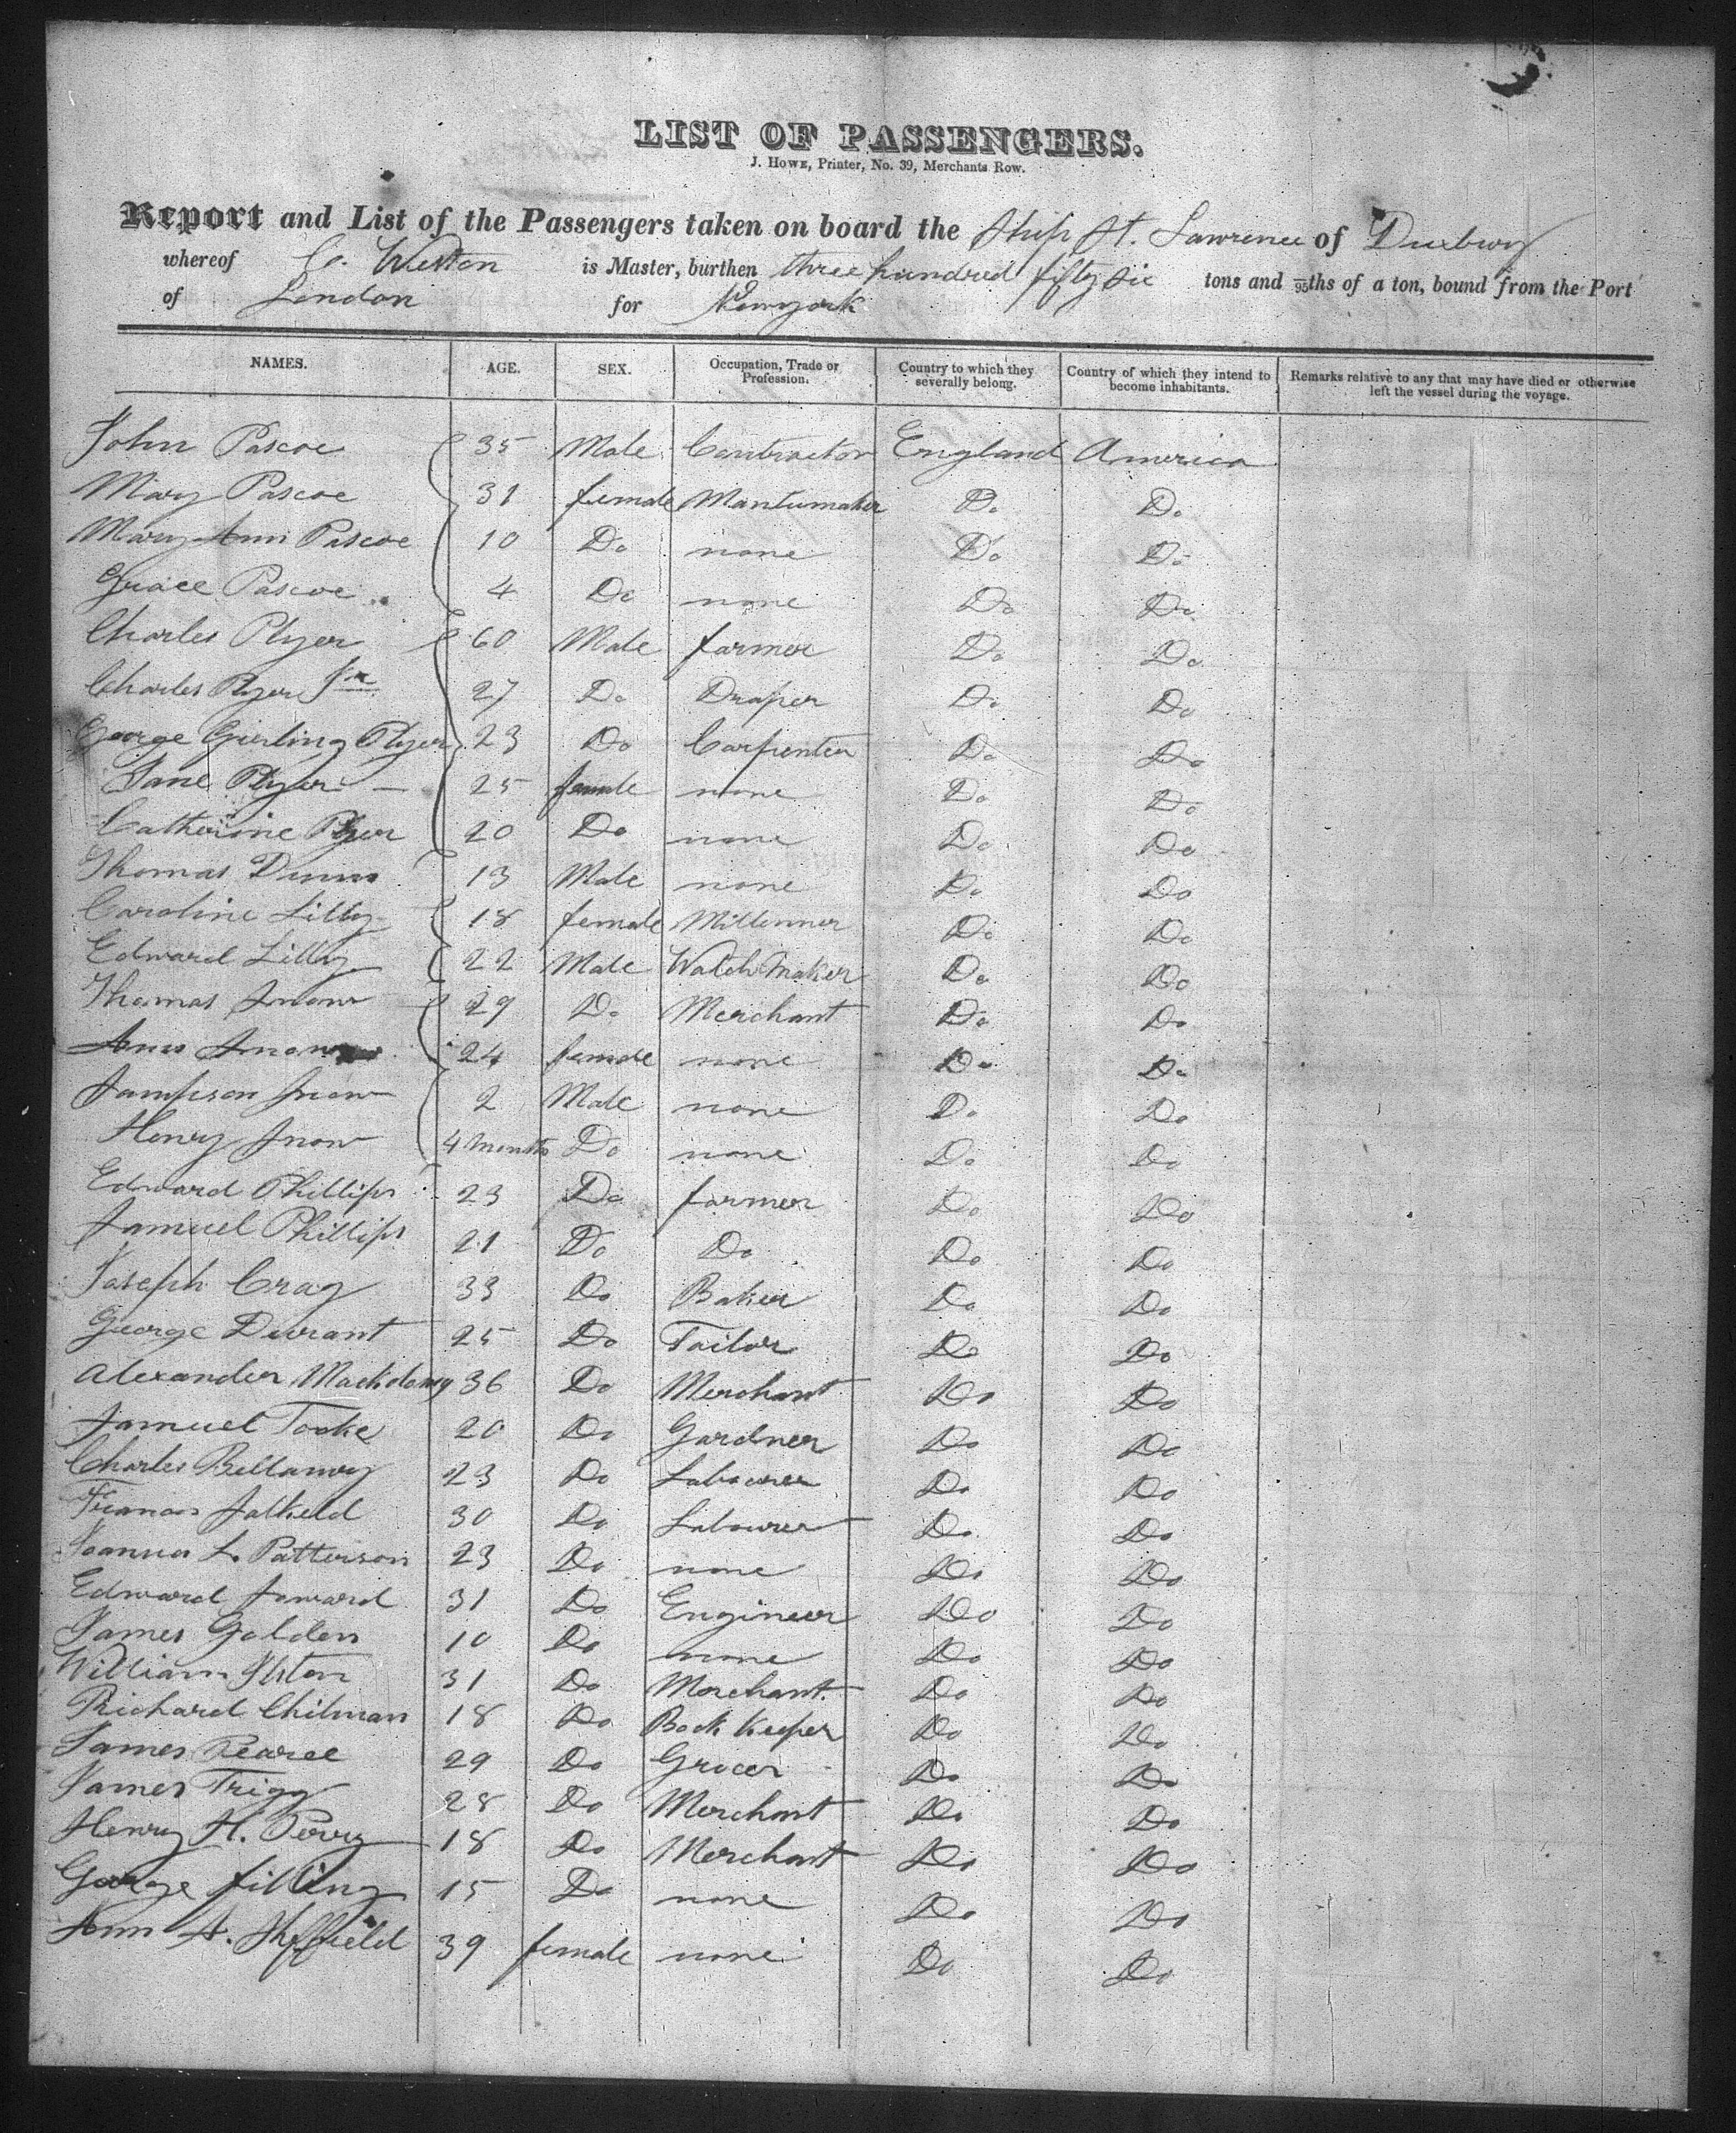 LIST OF PASSENGERS.
J. Howe, Printer, No. 39, Merchants Row.
Report and List of the Passengers taken on board the Ship St. Lawrence of Duxbury
whereof C. Weston is Master, burthen three hundred fifty six tons and 95ths of a ton, bound from the Port
of London for Newyork
NAMES. AGE. SEX. Occupation, Trade or Profession. Country to which they severally belong. Country of which they intend to become inhabitants. Remarks relative to any that may have died or otherwise left the vessel during the voyage.
John Pascoe 35 Male Contractor England America
Mary Pascoe 31 female Mantumaker Do Do
Mary Ann Pascoe 10 Do none Do Do
Grace Pascoe 4 Do none Do Do
Charles Plyer 60 Male farmer Do Do
Charles Plyer Jr 27 Do Draper Do Do
George Girling Plyer 23 Do Carpenter Do Do
Jane Plyer 25 female none Do Do
Catherine Plyer 20 Do none Do Do
Thomas Dunn 13 Male none Do Do
Caroline Lilly 18 female Millenner Do Do
Edward Lilly 22 Male Watch Maker Do Do
Thomas Snow 29 Do Merchant Do Do
Ann Snow 24 female none Do Do
Sampson Snow 2 Male none Do Do
Henry Snow 4 Months Do none Do Do
Edward Phillips 23 Do farmer Do Do
Samuel Phillips 21 Do Do Do Do
Joseph Crag 33 Do Baker Do Do
George Durrant 25 Do Tailor Do Do
Alexander 36 Do Merchant Do Do
Samuel Tooke 20 Do Gardner Do Do
Charles Bellamy 23 Do Labourer Do Do
Francis Salkeld 30 Do Labourer Do Do
L. Patterson 23 Do none Do Do
Edward Saward 31 Do Engineer Do Do
James Golden 10 Do none Do Do
William 31 Do Merchant Do Do
Richard Chilman 18 Do Book Keeper Do Do
James Pearce 29 Do Grocer Do Do
James Trigg 28 Do Merchant Do Do
Henry H. Perry 18 Do Merchant Do Do
George filling 15 Do none Do Do
Ann S. Sheffield 39 female none Do Do